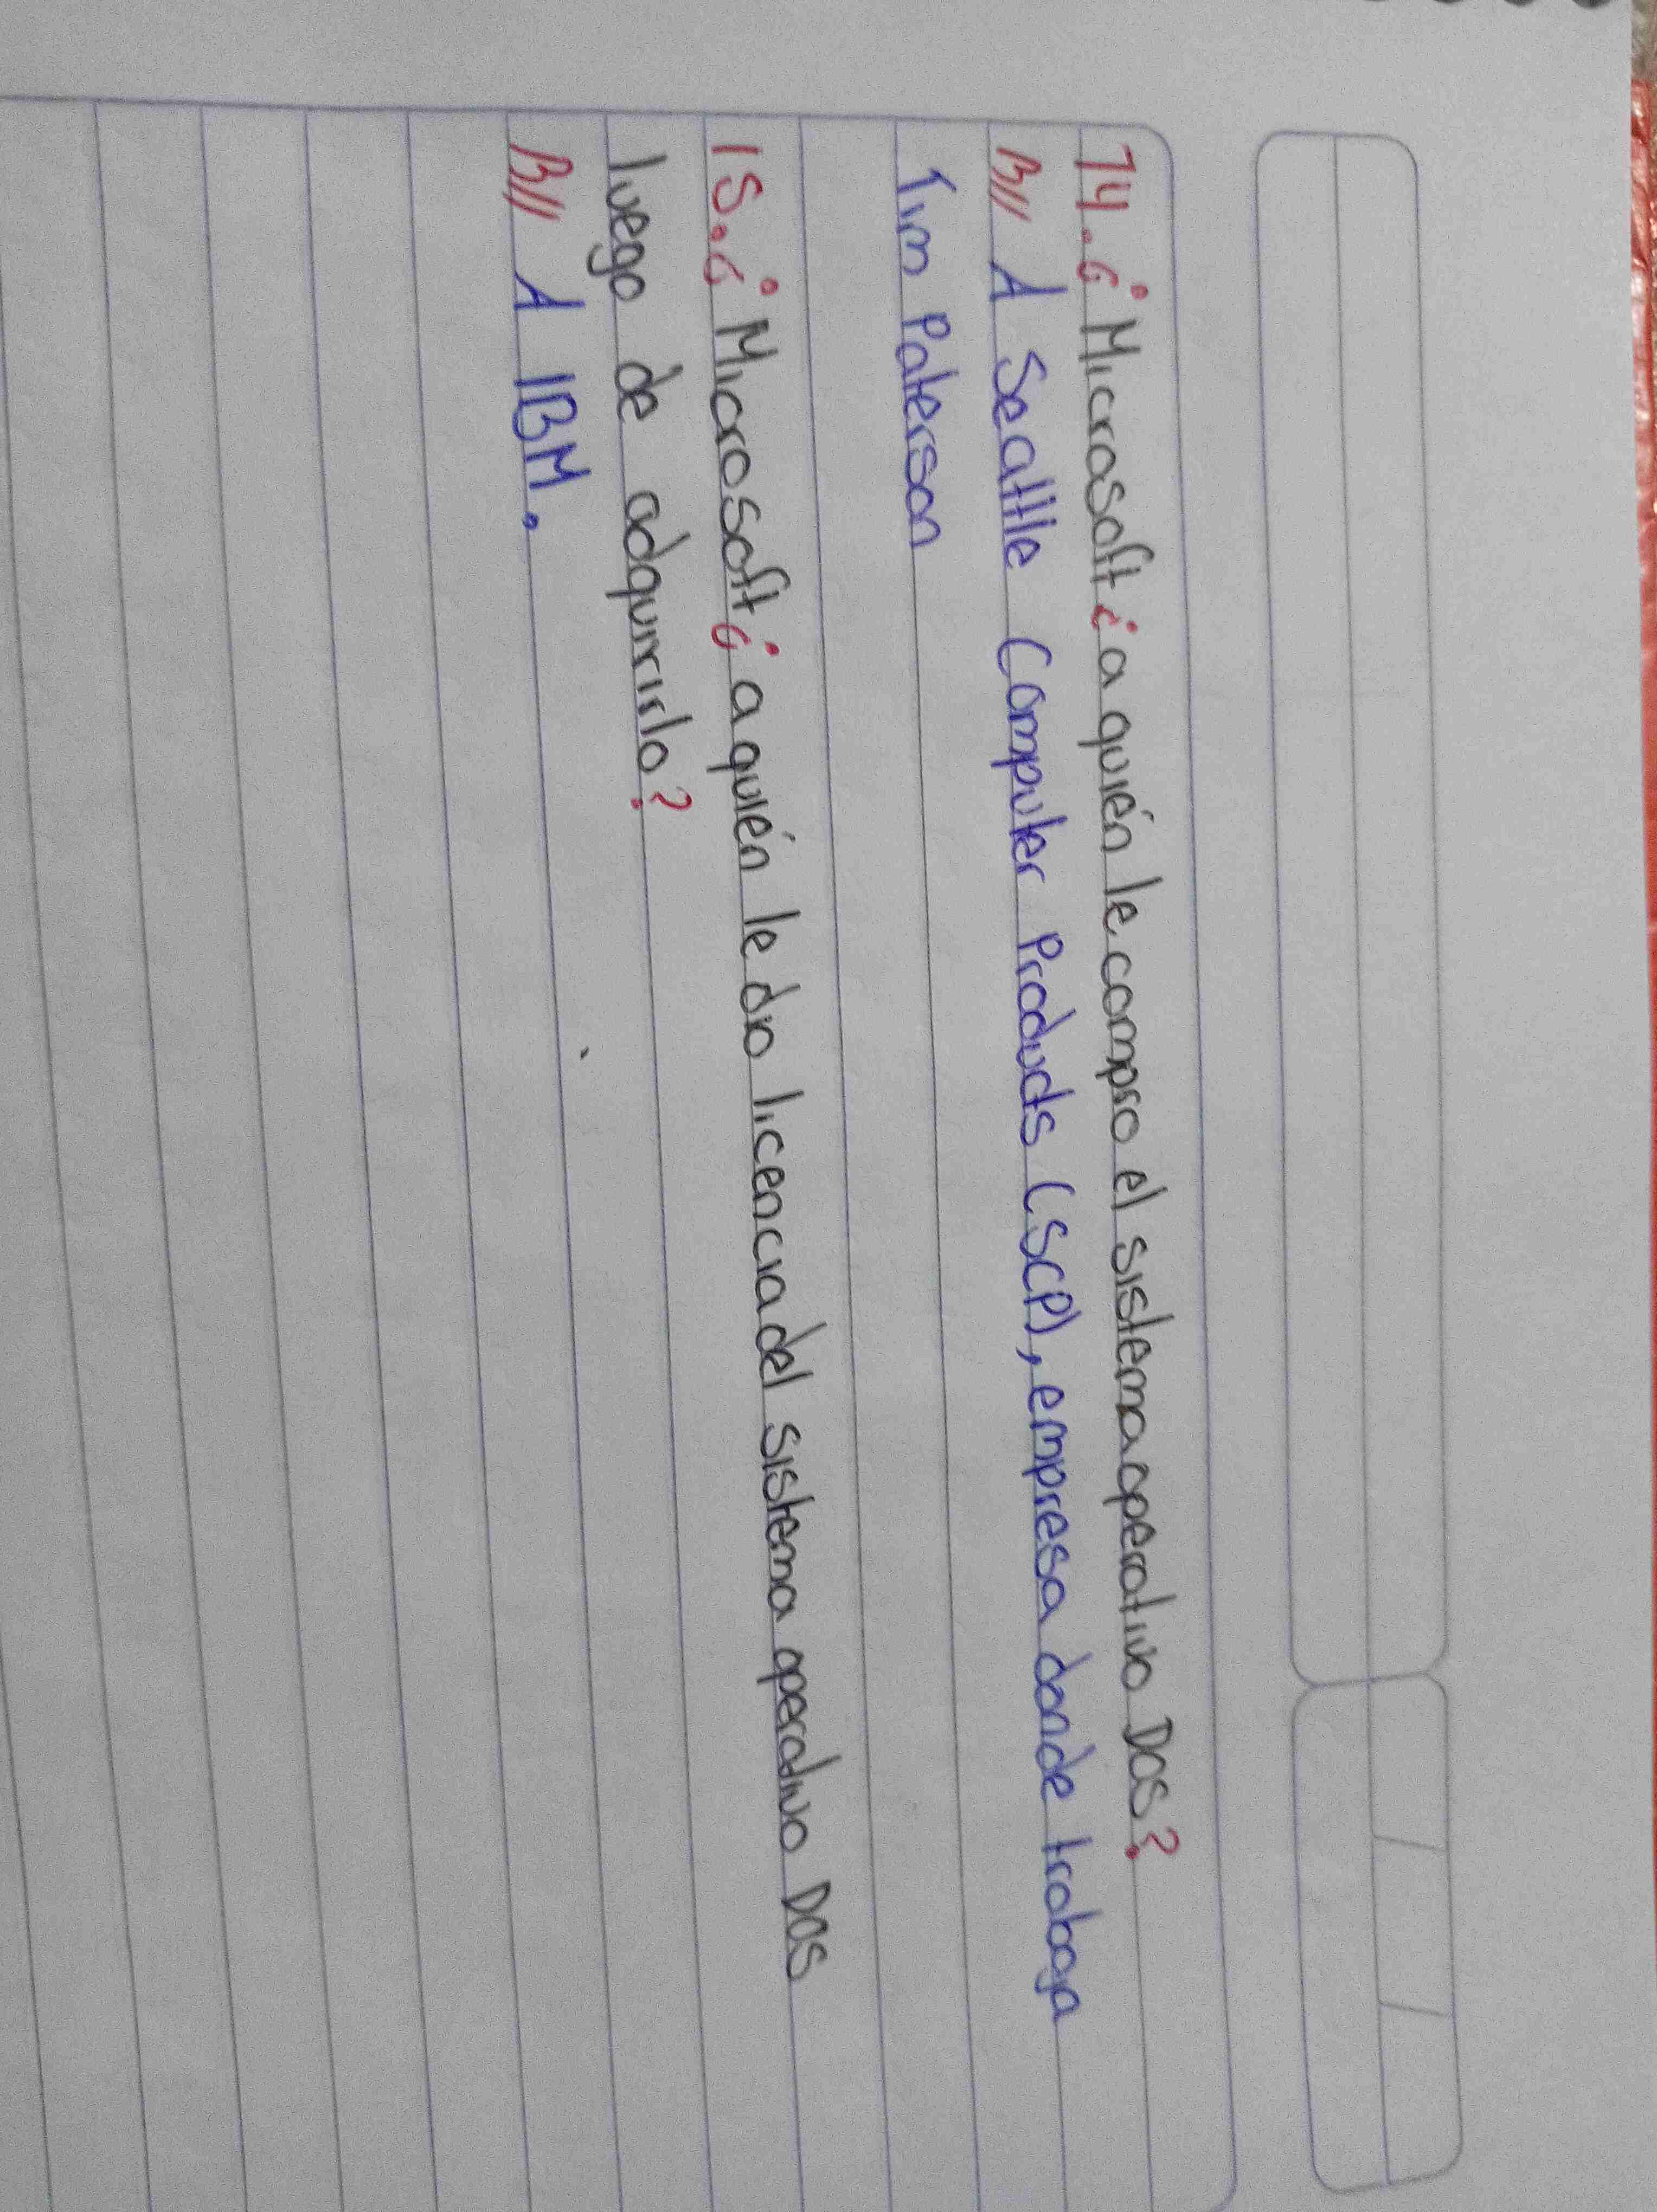 14.¿Microsoft ¿a quién le compro el sistema operativo DOS?
R// A Seattle Computer Products (SCP), empresa donde trabaja
Tim Paterson
15.¿Microsoft ¿a quién le dio licencia del sistema operativo DOS
luego de adquirirlo?
R// A IBM.